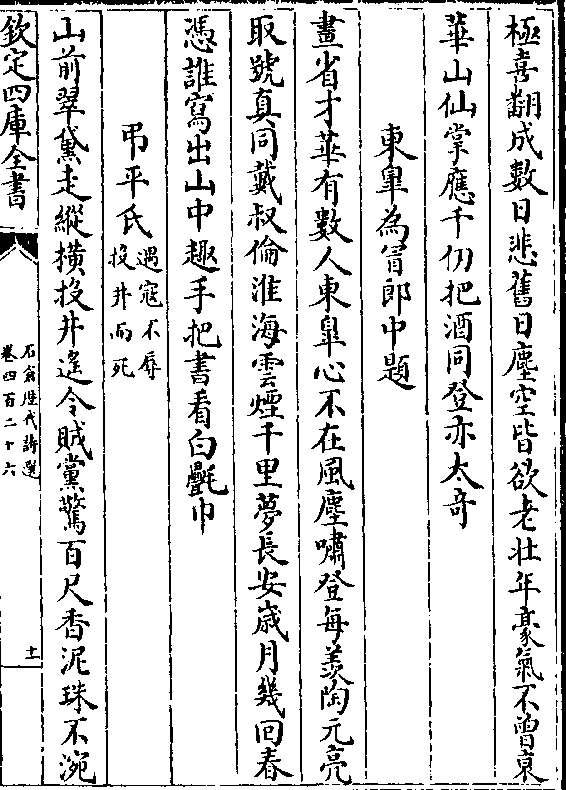 極喜翻成數日悲舊日塵空皆欲老壯年豪氣不曾衰
華山仙掌應千仞把酒同登亦太奇
東臯為冐郎中題
畫省才華有數人東臯心不在風塵嘯登每羡陶元亮
取號真同戴叔倫淮海雲煙千里夢長安歲月幾回春
憑誰寫出山中趣手把書看白氎巾
弔平氏
遇寇不辱
投井而死
山前翠黛走縱橫投井遙令賊黨驚百尺香泥珠不涴
欽定四庫全書
石倉歷代詩選
卷四百二十六
十一